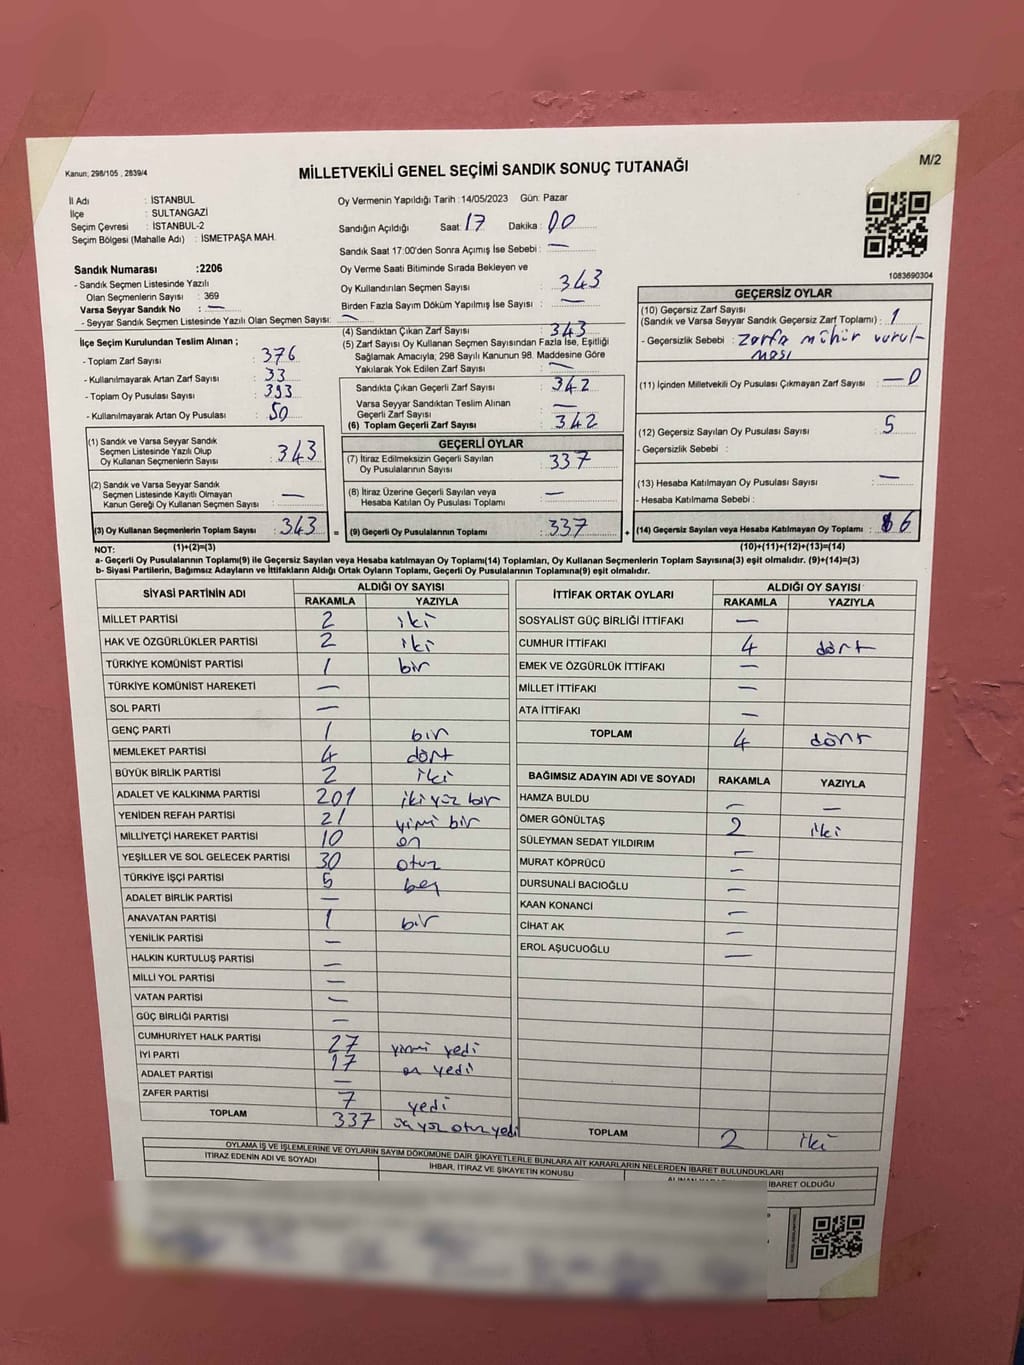 Kanun; 298/105 , 2839/4
MİLLETVEKİLİ GENEL SEÇİMİ SANDIK SONUÇ TUTANAĞI
M/2
İl Adı : İSTANBUL
İlçe : SULTANGAZİ
Seçim Çevresi : İSTANBUL-2
Seçim Bölgesi (Mahalle Adı) : İSMETPAŞA MAH.
Oy Vermenin Yapıldığı Tarih : 14/05/2023 Gün: Pazar
Sandığın Açıldığı Saat : 17 Dakika : 00
Sandık Saat 17:00'den Sonra Açımış İse Sebebi : —
Oy Verme Saati Bitiminde Sırada Bekleyen ve
Oy Kullandırılan Seçmen Sayısı : 343
Birden Fazla Sayım Döküm Yapılmış İse Sayısı : —
1083690304
Sandık Numarası :2206
- Sandık Seçmen Listesinde Yazılı
Olan Seçmenlerin Sayısı : 369
Varsa Seyyar Sandık No : —
- Seyyar Sandık Seçmen Listesinde Yazılı Olan Seçmen Sayısı: —
İlçe Seçim Kurulundan Teslim Alınan ;
- Toplam Zarf Sayısı : 376
- Kullanılmayarak Artan Zarf Sayısı : 33
- Toplam Oy Pusulası Sayısı : 393
- Kullanılmayarak Artan Oy Pusulası : 50
(1) Sandık ve Varsa Seyyar Sandık
Seçmen Listesinde Yazılı Olup
Oy Kullanan Seçmenlerin Sayısı : 343
(2) Sandık ve Varsa Seyyar Sandık
Seçmen Listesinde Kayıtlı Olmayan
Kanun Gereği Oy Kullanan Seçmen Sayısı : —
(3) Oy Kullanan Seçmenlerin Toplam Sayısı : 343 =
(4) Sandıktan Çıkan Zarf Sayısı : 343
(5) Zarf Sayısı Oy Kullanan Seçmen Sayısından Fazla İse, Eşitliği
Sağlamak Amacıyla; 298 Sayılı Kanunun 98. Maddesine Göre
Yakılarak Yok Edilen Zarf Sayısı : —
Sandıkta Çıkan Geçerli Zarf Sayısı : 342
Varsa Seyyar Sandıktan Teslim Alınan
Geçerli Zarf Sayısı : —
(6) Toplam Geçerli Zarf Sayısı : 342
GEÇERLİ OYLAR
(7) İtiraz Edilmeksizin Geçerli Sayılan
Oy Pusulalarının Sayısı : 337
(8) İtiraz Üzerine Geçerli Sayılan veya
Hesaba Katılan Oy Pusulası Toplamı : —
(9) Geçerli Oy Pusulalarının Toplamı : 337 +
GEÇERSİZ OYLAR
(10) Geçersiz Zarf Sayısı
(Sandık ve Varsa Seyyar Sandık Geçersiz Zarf Toplamı) : 1
- Geçersizlik Sebebi : Zarfa mühür vurul-
ması
(11) İçinden Milletvekili Oy Pusulası Çıkmayan Zarf Sayısı : —0
(12) Geçersiz Sayılan Oy Pusulası Sayısı : 5
- Geçersizlik Sebebi :
(13) Hesaba Katılmayan Oy Pusulası Sayısı : —
- Hesaba Katılmama Sebebi :
(14) Geçersiz Sayılan veya Hesaba Katılmayan Oy Toplamı : 6
NOT: (1)+(2)=(3) (10)+(11)+(12)+(13)=(14)
a- Geçerli Oy Pusulalarının Toplamı(9) ile Geçersiz Sayılan veya Hesaba katılmayan Oy Toplamı(14) Toplamları, Oy Kullanan Seçmenlerin Toplam Sayısına(3) eşit olmalıdır. (9)+(14)=(3)
b- Siyasi Partilerin, Bağımsız Adayların ve İttifakların Aldığı Ortak Oyların Toplamı, Geçerli Oy Pusulalarının Toplamına(9) eşit olmalıdır.
SİYASİ PARTİNİN ADI ALDIĞI OY SAYISI
RAKAMLA YAZIYLA
MİLLET PARTİSİ 2 iki
HAK VE ÖZGÜRLÜKLER PARTİSİ 2 iki
TÜRKİYE KOMÜNİST PARTİSİ 1 bir
TÜRKİYE KOMÜNİST HAREKETİ —
SOL PARTİ —
GENÇ PARTİ 1 bir
MEMLEKET PARTİSİ 4 dört
BÜYÜK BİRLİK PARTİSİ 2 iki
ADALET VE KALKINMA PARTİSİ 201 iki yüz bir
YENİDEN REFAH PARTİSİ 21 yirmi bir
MİLLİYETÇİ HAREKET PARTİSİ 10 on
YEŞİLLER VE SOL GELECEK PARTİSİ 30 otuz
TÜRKİYE İŞÇİ PARTİSİ 5 beş
ADALET BİRLİK PARTİSİ —
ANAVATAN PARTİSİ 1 bir
YENİLİK PARTİSİ —
HALKIN KURTULUŞ PARTİSİ —
MİLLİ YOL PARTİSİ —
VATAN PARTİSİ —
GÜÇ BİRLİĞİ PARTİSİ —
CUMHURİYET HALK PARTİSİ 27 yirmi yedi
İYİ PARTİ 17 on yedi
ADALET PARTİSİ —
ZAFER PARTİSİ 7 yedi
TOPLAM 337 üç yüz otuz yedi
İTTİFAK ORTAK OYLARI ALDIĞI OY SAYISI
RAKAMLA YAZIYLA
SOSYALİST GÜÇ BİRLİĞİ İTTİFAKI —
CUMHUR İTTİFAKI 4 dört
EMEK VE ÖZGÜRLÜK İTTİFAKI —
MİLLET İTTİFAKI —
ATA İTTİFAKI —
TOPLAM 4 dört
BAĞIMSIZ ADAYIN ADI VE SOYADI RAKAMLA YAZIYLA
HAMZA BULDU — —
ÖMER GÖNÜLTAŞ 2 iki
SÜLEYMAN SEDAT YILDIRIM —
MURAT KÖPRÜCÜ —
DURSUNALİ BACIOĞLU —
KAAN KONANCI —
CİHAT AK —
EROL AŞUCUOĞLU —
TOPLAM 2 iki
OYLAMA İŞ VE İŞLEMLERİNE VE OYLARIN SAYIM DÖKÜMÜNE DAİR ŞİKAYETLERLE BUNLARA AİT KARARLARIN NELERDEN İBARET BULUNDUKLARI
İTİRAZ EDENİN ADI VE SOYADI İHBAR, İTİRAZ VE ŞİKAYETİN KONUSU İBARET OLDUĞU